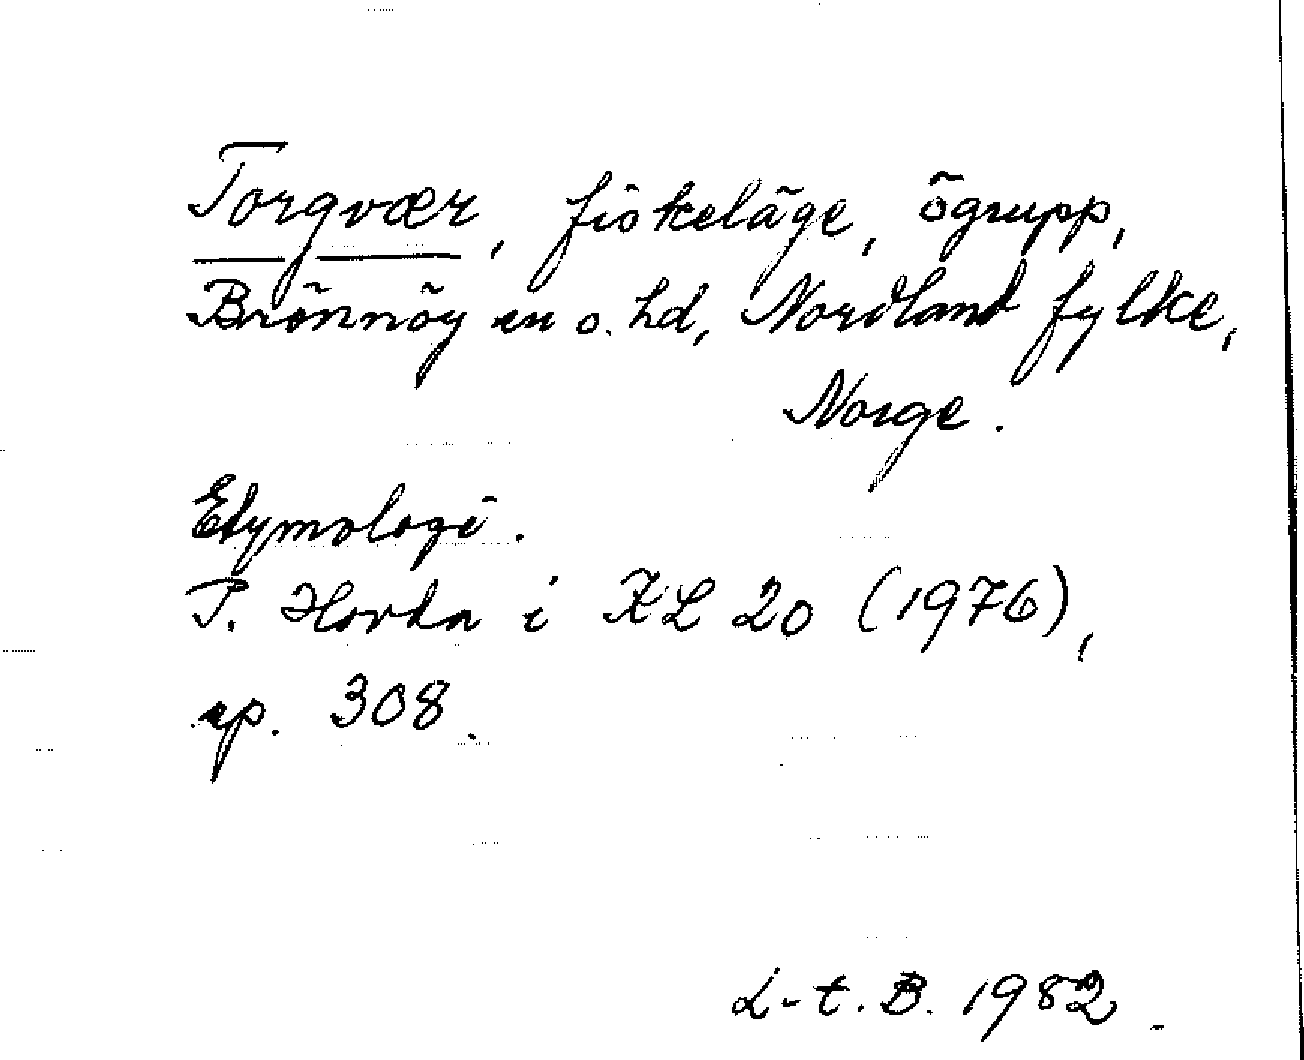 Torgvær, fiskeläge, ögrupp,
Brönnöy sn o. hd, Nordland fylke,
Norge.
Etymologi.
P. Hovda i KL 20 (1976),
sp. 308.
L-t. B. 1982.